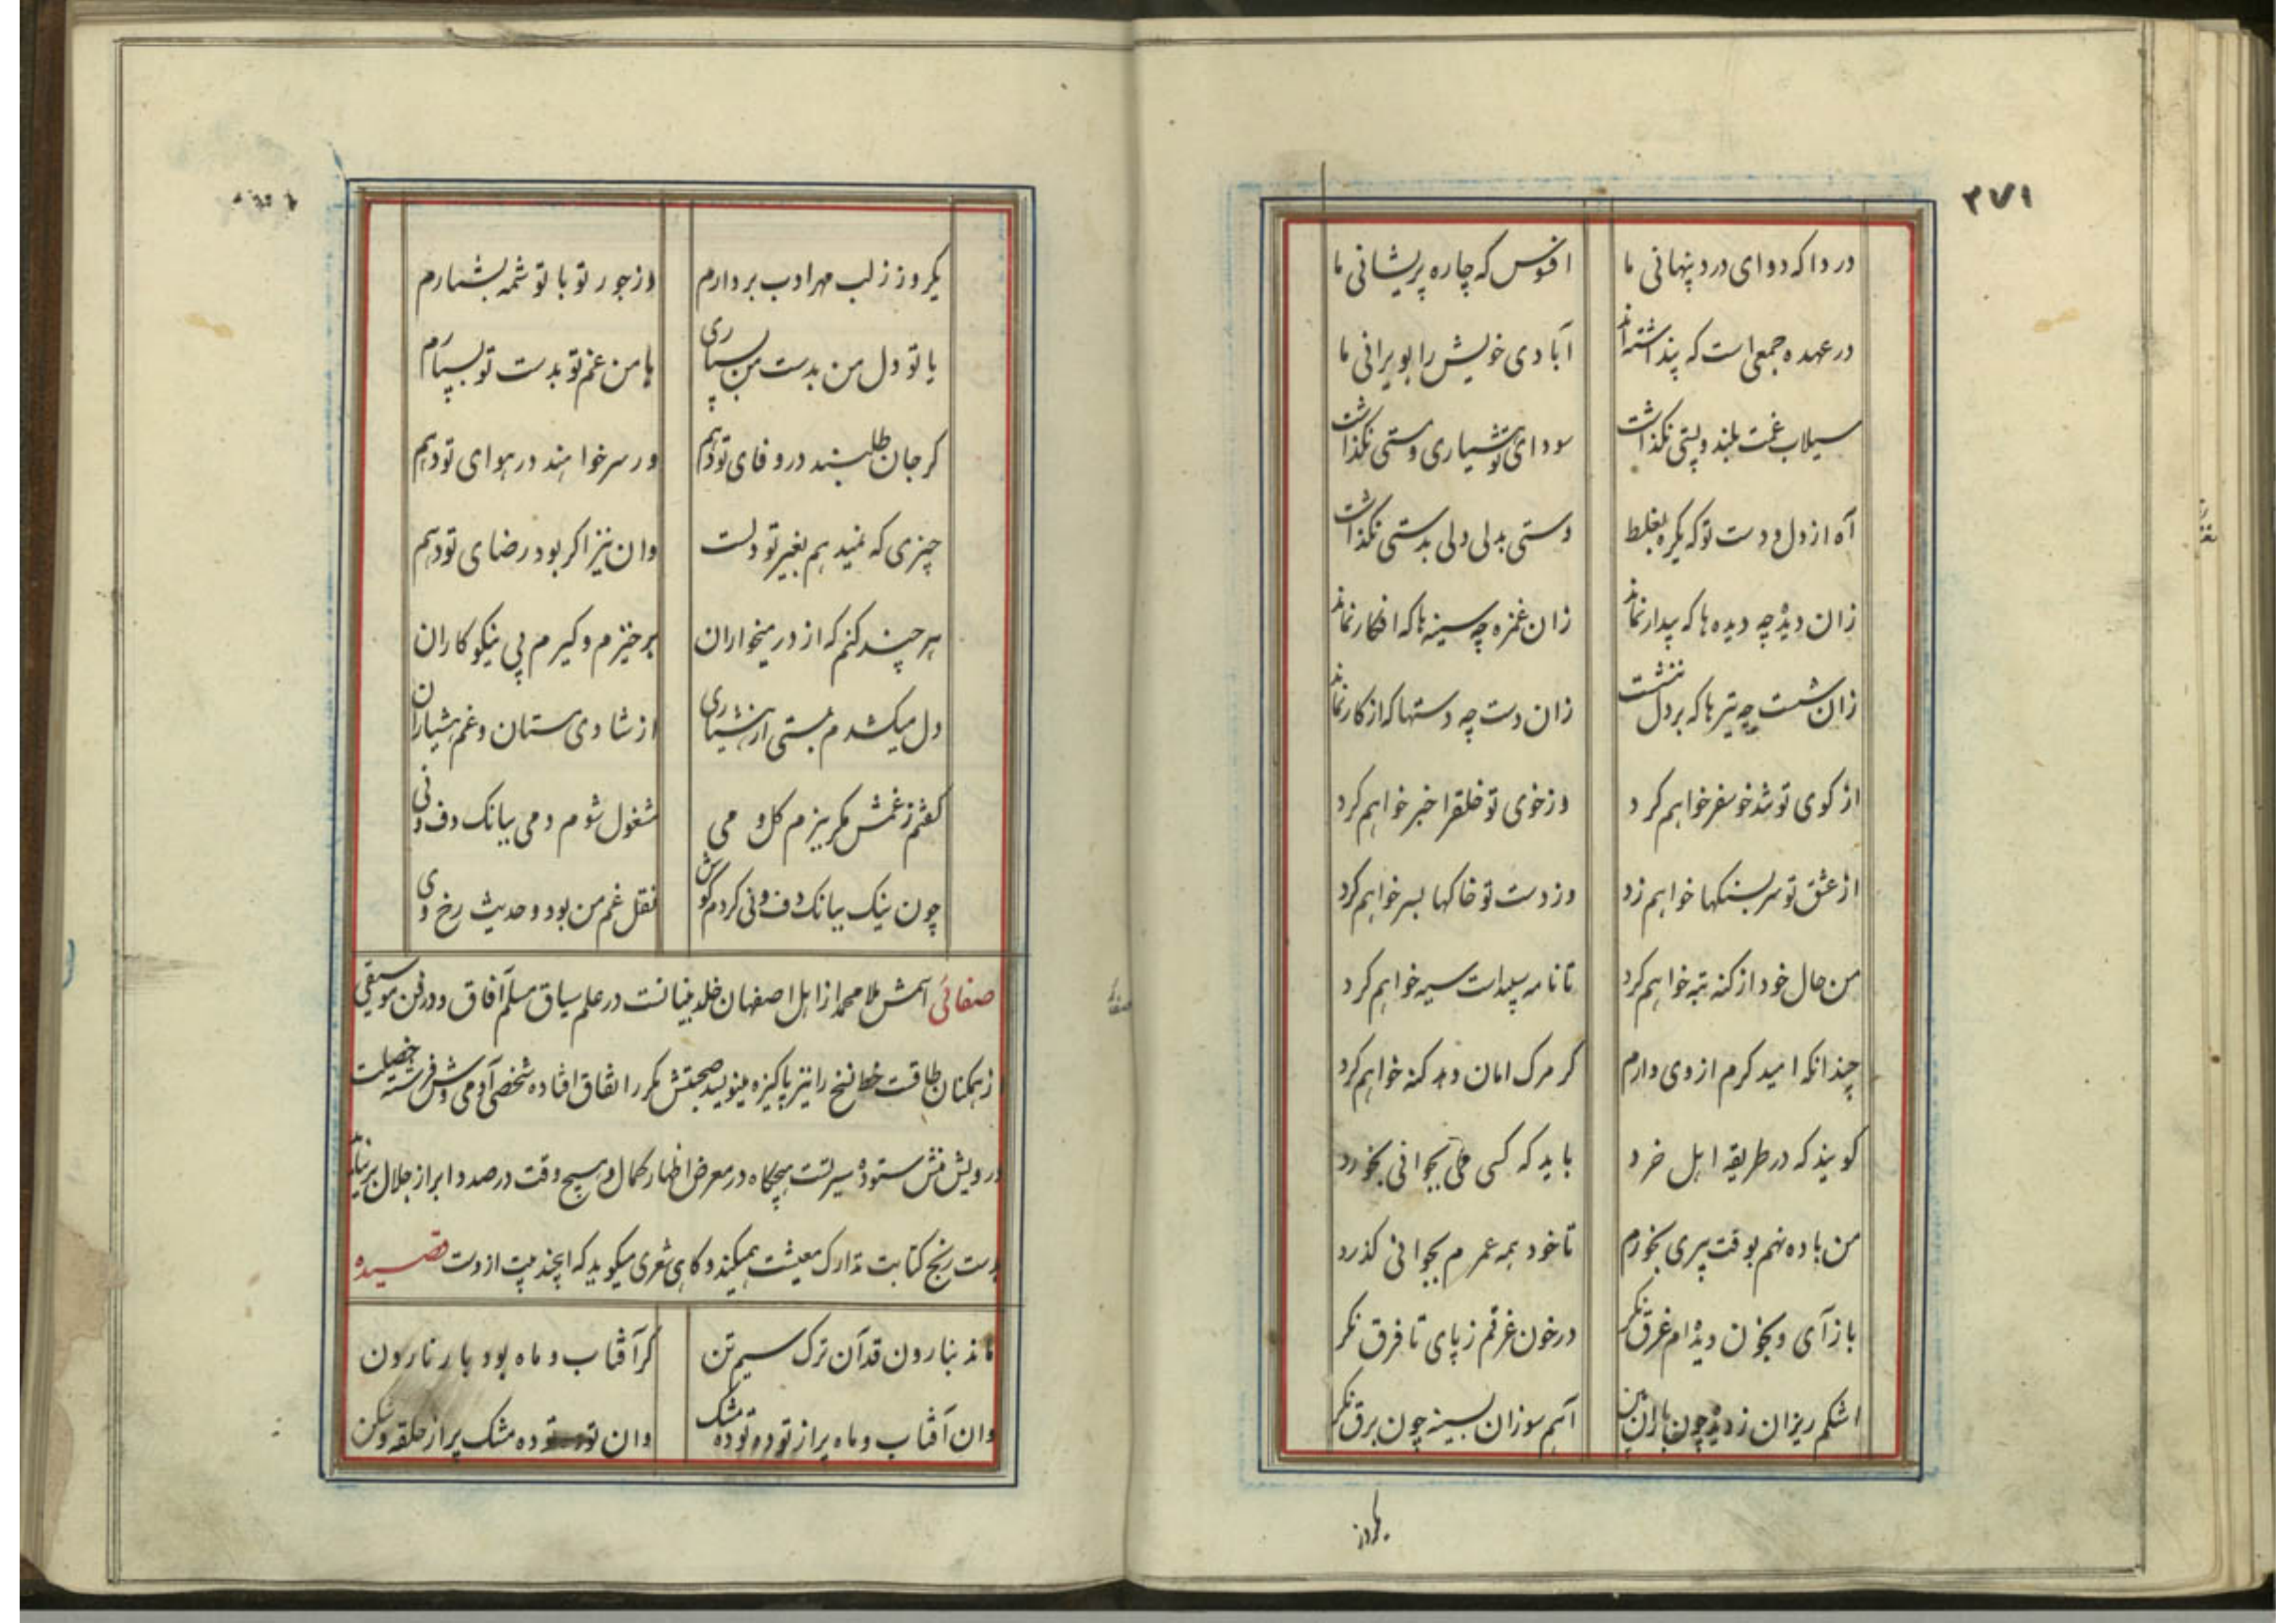 ۲۷۱
دردا که دوای درد پنهانی ما افسوس که چاره پریشانی ما
در عهده جمعی است که پنداشته‌اند آبادی خویش را بویرانی ما
سیلاب غمت بلند و پستی نگذاشت سودای تو هشیاری و مستی نگذاشت
آه از دل و دست تو که یکره بغلط دستی بدلی دلی بدستی نگذاشت
زان دیده چه دیده ها که بیدار نماند زان غمزه چه سینه ها که افکار نماند
زان شست چه تیرها که بر دل ننشست زان دست چه دستها که از کار نماند
از کوی تو تندخو سفر خواهم کرد وز خوی تو خلقرا خبر خواهم کرد
از عشق تو سر بسنکها خواهم زد وز دست تو خاکها بسر خواهم کرد
من حال خود از کنه تبه خواهم کرد تا نامه سیه خواهم کرد
چندانکه امید کرم از وی دارم کر مرک امان دهد کنه خواهم کرد
کویند که در طریقه اهل خرد باید که کسی می بجوانی نخورد
من باده نهم بوقت پیری بخورم تا خود همه عمرم بجوانی گذرد
باز آی و بخون دیده‌ام غرق نکر در خون غرقم ز پای تا فرق نکر
اشکم ریزان ز دیده چون باران بین آهم سوزان بسینه چون برق نکر
یکروز
یکروز ز لب مهر ادب بردارم وز جور تو با تو شمه بشمارم
یا تو دل من بدست من بسپاری یا من غم تو بدست تو بسپارم
کر جان طلبند در وفای تو دهم ور سر خواهند در هوای تو دهم
چیزی که نمیدهم بغیر تو دلست وان نیز اکر بود رضای تو دهم
هر چند کنم که از در میخواران برخیزم و کیرم پی نیکوکاران
دل میکشدم بمستی از هشیاری از شادی مستان و غم هشیاران
کفتم ز غمش بکریزم کل و می مشغول شوم دمی ببانک دف و نی
چون نیک ببانک دف و نی کردم کوش نقل غم من بود و حدیث رخ وی
صفائی اسمش ملا محمد از اهل اصفهان خلد بنیانست در علم سیاق مسلم آفاق و در فن موسیقی
از همکنان طاقت خط نسخ را نیز پاکیزه مینویسد صحبتش مکرر اتفاق افتاده شخصی آدمی وش فرشته خصلت
درویش منش ستوده سیرتست هیچکاه در معرض اظهار کمال و هیچ وقت در صدد ابراز جلال بر نیامد
بدست رنج کتابت تدارک معیشت همیکند و کاهی شعری میکوید که اینچند بیت ازوست قصیده
ماند بنارون قد آن ترک سیم تن کر آفتاب و ماه بود بار نارون
وان آفتاب و ماه پر از توده توده مشک وان توده توده مشک پر از حلقه و شکن